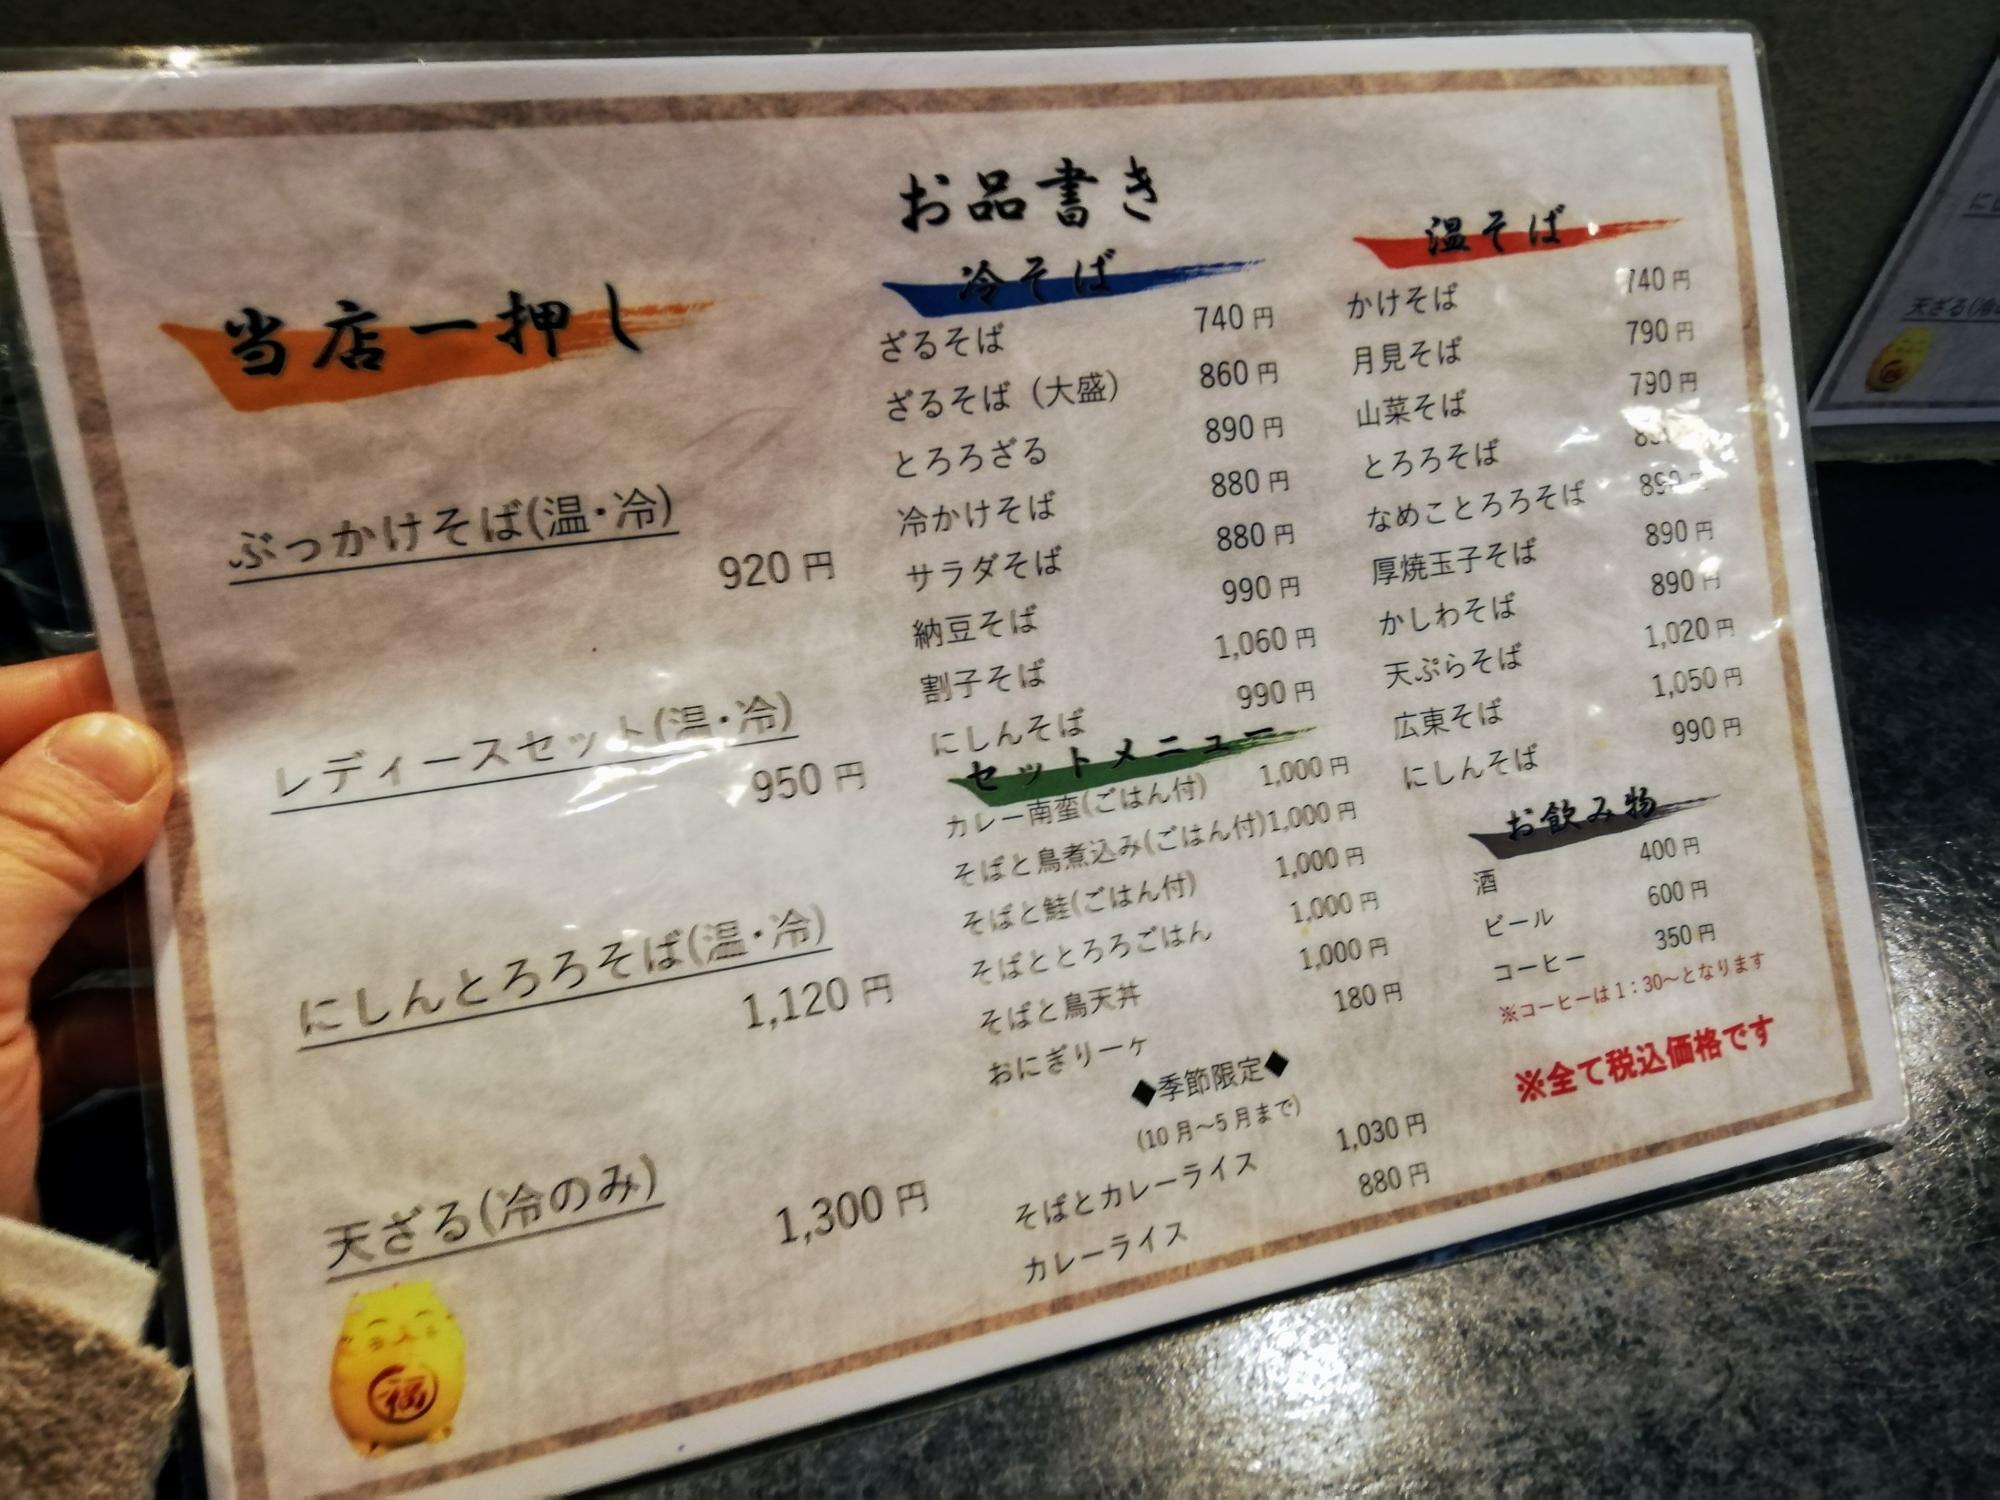 お品書き
当店一押し
ぶっかけそば(温・冷)
920円
レディースセット(温・冷)
950円
にしんとろろそば(温・冷)
1,120円
天ざる(冷のみ) 1,300円
福
冷そば
ざるそば 740円
ざるそば（大盛） 860円
とろろざる 890円
冷かけそば 880円
サラダそば 880円
納豆そば 990円
割子そば 1,060円
にしんそば 990円
セットメニュー
カレー南蛮(ごはん付) 1,000円
そばと鳥煮込み(ごはん付)1,000円
そばと鮭(ごはん付) 1,000円
そばととろろごはん 1,000円
そばと鳥天丼 1,000円
おにぎり一ヶ 180円
◆季節限定◆
(10月～5月まで)
そばとカレーライス 1,030円
カレーライス 880円
温そば
かけそば 740円
月見そば 790円
山菜そば 790円
とろろそば
なめことろろそば 890円
厚焼玉子そば 890円
かしわそば 890円
天ぷらそば 1,020円
広東そば 1,050円
にしんそば 990円
お飲み物
酒 400円
ビール 600円
コーヒー 350円
※コーヒーは1：30～となります
※全て税込価格です